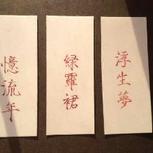 浮生夢
綠羅裙
憶流年